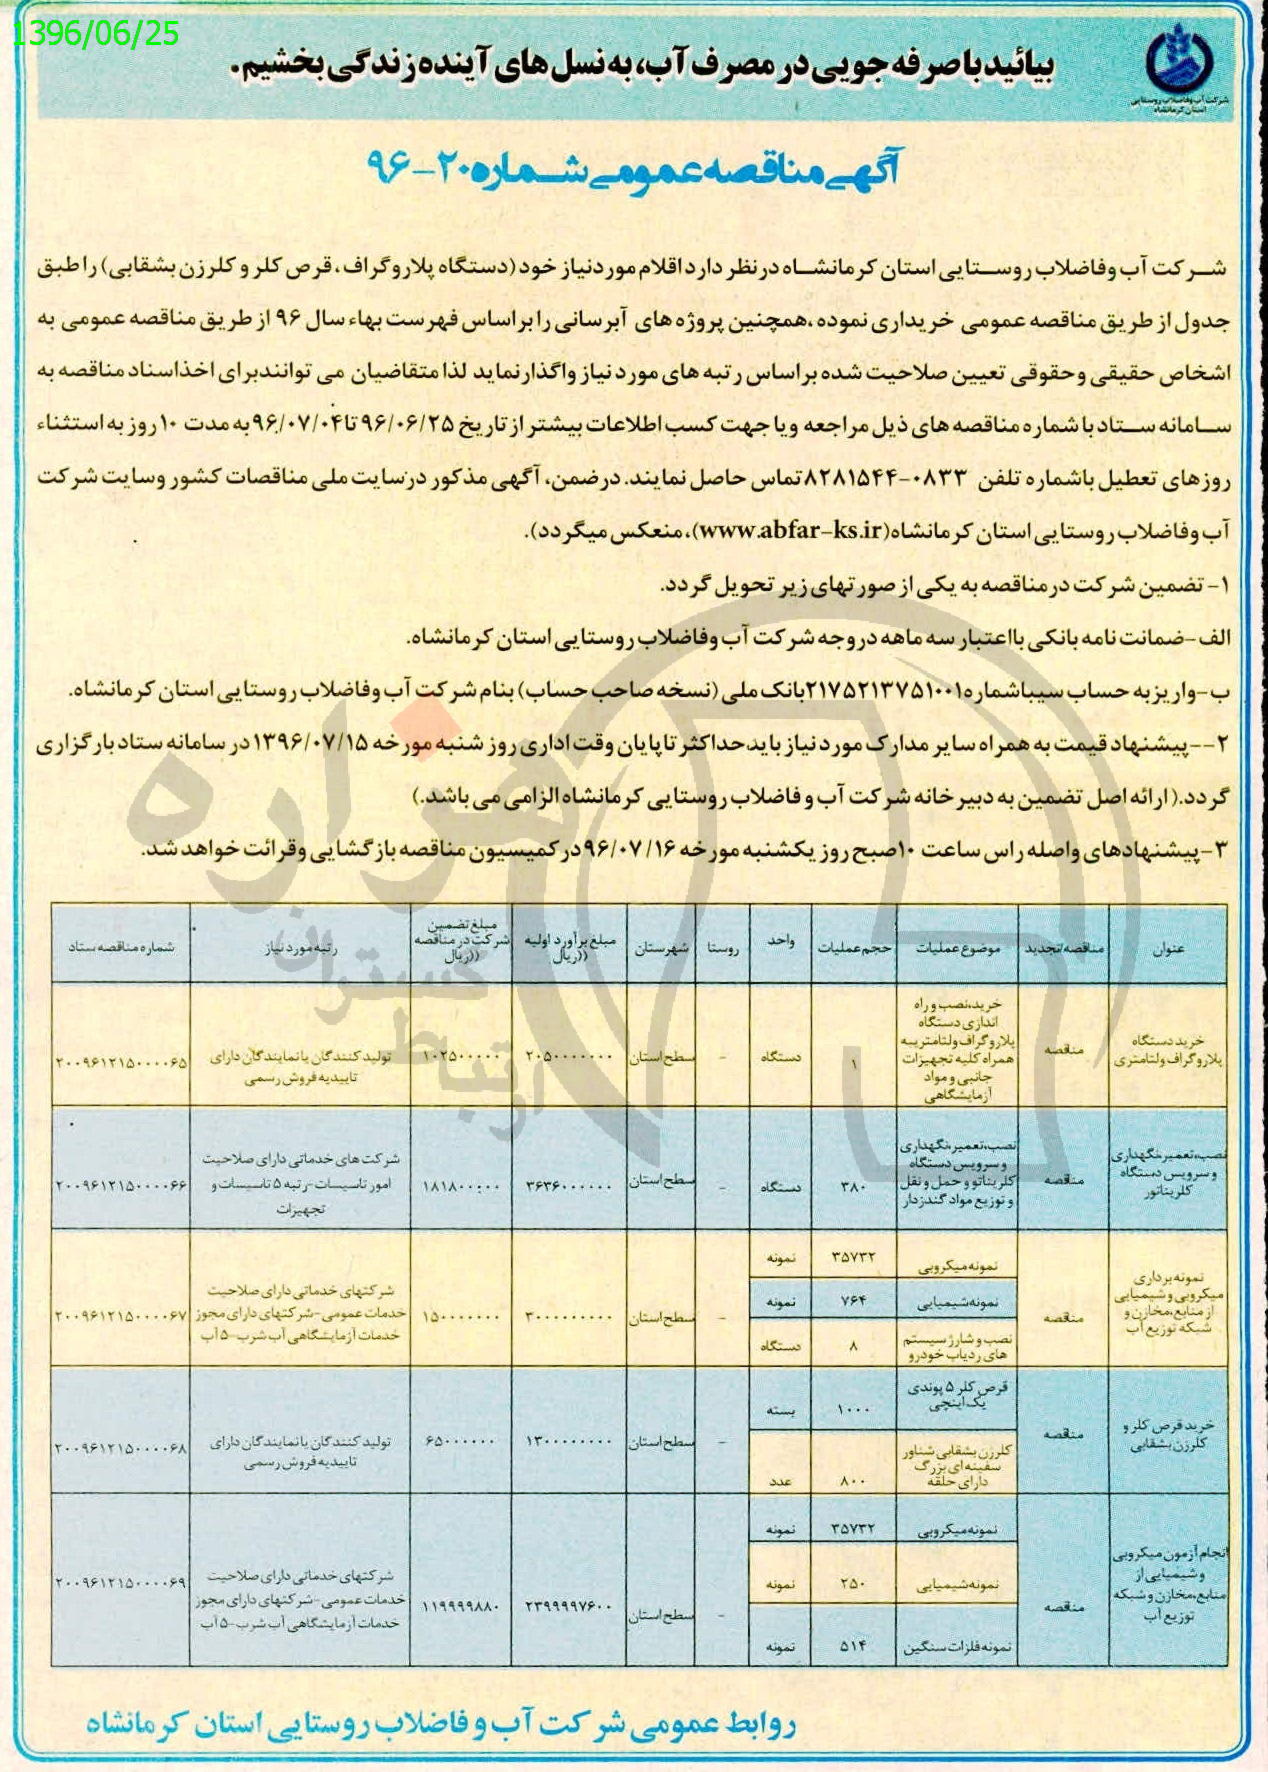 1396/06/25
بیائید با صرفه جویی در مصرف آب، به نسل های آینده زندگی بخشیم.
شرکت آب و فاضلاب روستایی
استان کرمانشاه
آگهی مناقصه عمومی شماره ۲۰-۹۶
شرکت آب وفاضلاب روستایی استان کرمانشاه درنظر دارد اقلام موردنیاز خود (دستگاه پلاروگراف، قرص کلر و کلرزن بشقابی) را طبق
جدول از طریق مناقصه عمومی خریداری نموده ،همچنین پروژه های آبرسانی را براساس فهرست بهاء سال ۹۶ از طریق مناقصه عمومی به
اشخاص حقیقی وحقوقی تعیین صلاحیت شده براساس رتبه های مورد نیاز واگذار نماید لذا متقاضیان می توانند برای اخذ اسناد مناقصه به
سامانه ستاد با شماره مناقصه های ذیل مراجعه ویا جهت کسب اطلاعات بیشتر از تاریخ ۹۶/۰۶/۲۵ تا ۹۶/۰۷/۰۴ به مدت ۱۰ روز به استثناء
روزهای تعطیل باشماره تلفن ۰۸۳۳-۸۲۸۱۵۴۴ تماس حاصل نمایند. درضمن، آگهی مذکور درسایت ملی مناقصات کشور وسایت شرکت
آب وفاضلاب روستایی استان کرمانشاه(www.abfar-ks.ir)، منعکس میگردد).
۱- تضمین شرکت درمناقصه به یکی از صورتهای زیر تحویل گردد.
الف-ضمانت نامه بانکی بااعتبار سه ماهه دروجه شرکت آب وفاضلاب روستایی استان کرمانشاه.
ب-واریزبه حساب سیباشماره۲۱۷۵۲۱۳۷۵۱۰۰۱بانک ملی (نسخه صاحب حساب) بنام شرکت آب وفاضلاب روستایی استان کرمانشاه.
۲--پیشنهاد قیمت به همراه سایر مدارک مورد نیاز باید،حداکثر تا پایان وقت اداری روز شنبه مورخه ۱۳۹۶/۰۷/۱۵ در سامانه ستاد بارگزاری
گردد.( ارائه اصل تضمین به دبیرخانه شرکت آب و فاضلاب روستایی کرمانشاه الزامی می باشد.)
۳-پیشنهادهای واصله راس ساعت ۱۰صبح روز یکشنبه مورخه ۹۶/۰۷/۱۶درکمیسیون مناقصه بازگشایی وقرائت خواهد شد.
عنوان مناقصه/تجدید موضوع عملیات حجم عملیات واحد روستا شهرستان مبلغ برآورد اولیه ((ریال مبلغ تضمین شرکت در مناقصه ((ریال رتبه مورد نیاز شماره مناقصه ستاد
خرید دستگاه
پلاروگراف ولتامتری
مناقصه
خرید،نصب و راه
اندازی دستگاه
پلاروگراف ولتامتر به
همراه کلیه تجهیزات
جانبی و مواد
آزمایشگاهی
۱ دستگاه - سطح استان ۲۰۵۰۰۰۰۰۰۰ ۱۰۲۵۰۰۰۰۰
تولید کنندگان یا نمایندگان دارای
تاییدیه فروش رسمی
۲۰۰۹۶۱۲۱۵۰۰۰۰۶۵
نصب،تعمیر،نگهداری
و سرویس دستگاه
کلریناتور
مناقصه
نصب،تعمیر،نگهداری
و سرویس دستگاه
کلریناتو و حمل و نقل
و توزیع مواد گندزدار
۳۸۰ دستگاه - سطح استان ۳۶۳۶۰۰۰۰۰۰ ۱۸۱۸۰۰۰۰۰
شرکت های خدماتی دارای صلاحیت
امور تاسیسات-رتبه ۵ تاسیسات و
تجهیزات
۲۰۰۹۶۱۲۱۵۰۰۰۰۶۶
نمونه برداری
میکروبی و شیمیایی
از منابع،مخازن و
شبکه توزیع آب
مناقصه
نمونه میکروبی ۳۵۷۳۲ نمونه
نمونه شیمیایی ۷۶۴ نمونه
نصب و شارژ سیستم
های ردیاب خودرو
۸ دستگاه
- سطح استان ۳۰۰۰۰۰۰۰۰۰ ۱۵۰۰۰۰۰۰۰
شرکتهای خدماتی دارای صلاحیت
خدمات عمومی -شرکتهای دارای مجوز
خدمات آزمایشگاهی آب شرب-۵ آب
۲۰۰۹۶۱۲۱۵۰۰۰۰۶۷
خرید قرص کلر و
کلرزن بشقابی
مناقصه
قرص کلر ۵ پوندی
یک اینچی
۱۰۰۰ بسته
کلرزن بشقابی شناور
سفینه ای بزرگ
دارای حلقه
۸۰۰ عدد
- سطح استان ۱۳۰۰۰۰۰۰۰۰ ۶۵۰۰۰۰۰۰
تولید کنندگان یا نمایندگان دارای
تاییدیه فروش رسمی
۲۰۰۹۶۱۲۱۵۰۰۰۰۶۸
انجام آزمون میکروبی
و شیمیایی از
منابع،مخازن و شبکه
توزیع آب
مناقصه
نمونه میکروبی ۳۵۷۳۲ نمونه
نمونه شیمیایی ۲۵۰ نمونه
نمونه فلزات سنگین ۵۱۴ نمونه
- سطح استان ۲۳۹۹۹۹۷۶۰۰ ۱۱۹۹۹۹۸۸۰
شرکتهای خدماتی دارای صلاحیت
خدمات عمومی -شرکتهای دارای مجوز
خدمات آزمایشگاهی آب شرب-۵ آب
۲۰۰۹۶۱۲۱۵۰۰۰۰۶۹
هزاره
ارتباط گستران
روابط عمومی شرکت آب و فاضلاب روستایی استان کرمانشاه